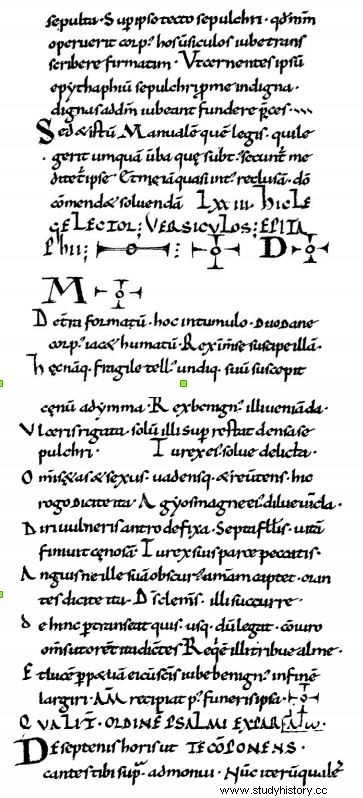 sepulta. Sup ipso tecto sepulchri. q̄d m̄m
operuerit corpꝰ hos ũsiculos iube trans
scribere firmatim. Ut cernentes ipsũ
epythaphiũ sepulchri p̱ me indigna.
dignas ad dm̃ iubeant fundere p̃ces.
Sed & istũ Manualẽ quẽ legis. qui le
gerit umquã ũba quę subt' secunt' me
ditet ipse. Et me iã quasi int' reclusã. dõ
cõmend& soluendã LXXIII. HIC LE
GE LECTOR; VERSICULOS; EPITA
PHII; : D
M
De t̃ra formatũ. hoc in tumulo. DUODANE
corp' iac& humatũ. Rex im̃se suscipe illã.
Hęc nãq. fragile tell' undiq. suũ suscepit
cęnũ ad ymma. Rex benign' illi veniã da.
Ulceris rigata. solũ illi sup restat densa se
pulchri. Tu rex ei' solve delicta.
Om̃is ętas & sexus. vadensq. & reũtens. hic
rogo dicite ita. Agyos magne ei' dilue vincla.
Diri vulneris antro defixa. Septa fellis. vitã
finivit cęnosã. Tu rex suis parce peccatis.
Anguis ne ille suã obscur' animam captet. oran
tes dicite ita. D̃s clemẽs. illi succurre.
de hinc p̱transeat quis. usq. dũ legat. coniuro
om̃s ut orẽt ita dicẽtes Reqẽ illi tribue alme.
Et lucẽ p̱petuã ei cũ sc̃is iube benign' in finẽ
largiri. AM̃ recipiat p' funeris ipsa.
QUALIT̃. ORDINẼ PSALMI EX PAR
De septenis horis ut TE CÕPONENS.
cantes tibi sup̃. admonui. Nũc iterũ qualẽ
www.studyhistory.cc